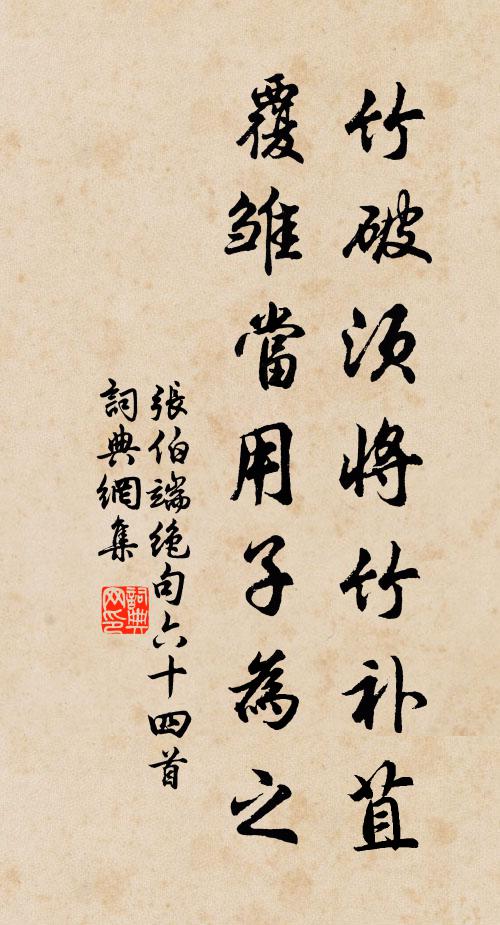 竹破須將竹補苴
覆雏當用子為之
張伯端絶句六十四首
詞典網集
詞典网印